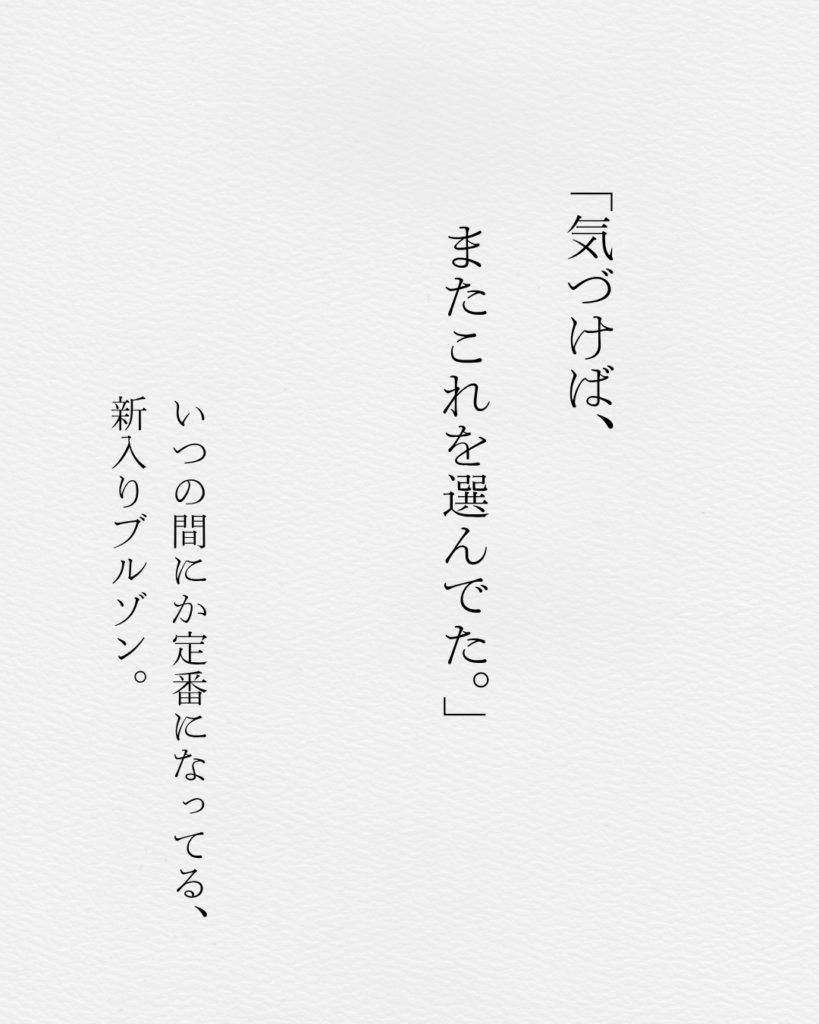 「気づけば、
またこれを選んでた。」
いつの間にか定番になってる、
新入りブルゾン。